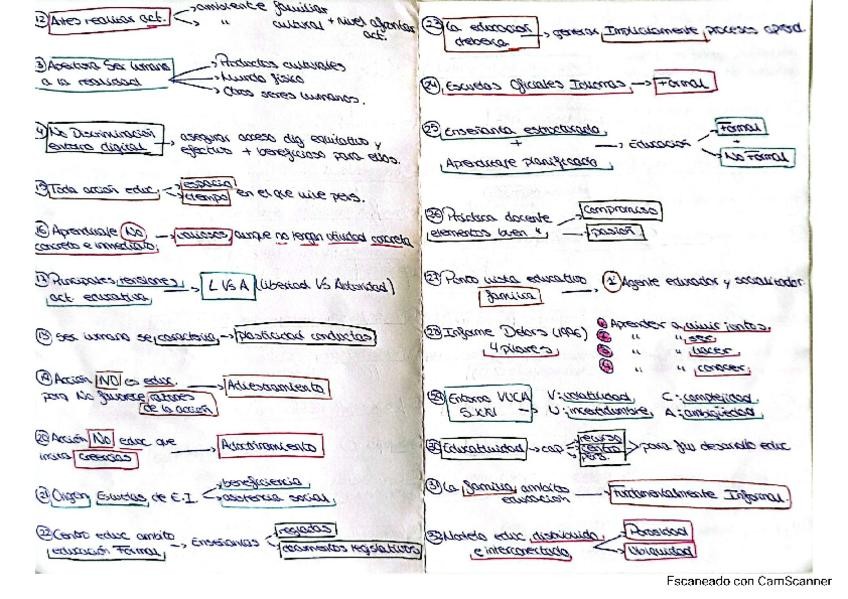 12) Antes realizar act. → ambiente familiar
" cultural + nivel afrontar act.
13) Apertura Ser humano a la realidad → Productos culturales
→ Mundo físico
→ Otros seres humanos.
14) No Discriminación entorno digital → asegurar acceso dig equitativo y
efectivo + beneficioso para ellos.
15) Toda acción educ. → espacio
→ tiempo en el que vive pers.
16) Aprendizaje No → valiosos, aunque no tengan utilidad concreta
concreto e inmediato
17) Principales tensiones → L VS A (libertad VS Autoridad)
act educativa
18) ser humano se caracteriza → plasticidad conductas
19) Acción NO es educ. → Adiestramiento
para No favorece
de la acción
20) Acción No educ que → Adoctrinamiento
creencias
21) Origen Escuelas de E.I. → beneficiencia
→ asistencia social
22) Centro educ ambito → Enseñanzas → regladas
educación Formal → documentos legislativos
23) La educación → generar Implícitamente procesos
debería
24) Escuelas Oficiales Idiomas → Formal
25) Enseñanza estructurada
+ → Educación → Formal
+
Aprendizaje planificado → No Formal
26) docente → compromiso
elementos → pasión
27) Punto vista educativo → 1º Agente educador y socializador
familia
28) Informe Delors (1996) Aprender a vivir juntos
4 pilares " " ser
" " hacer
" " conocer
29) Entorno VUCA → V: volatilidad C: complejidad
S.XXI → U: incertidumbre A: ambigüedad
30) Educatividad → cap → para fin desarrollo educ
31) La familia ambito → Fundamentalmente Informal.
educación
32) Modelo educ distribuido → Porosidad
e interconectado → Ubiquidad
Escaneado con CamScanner